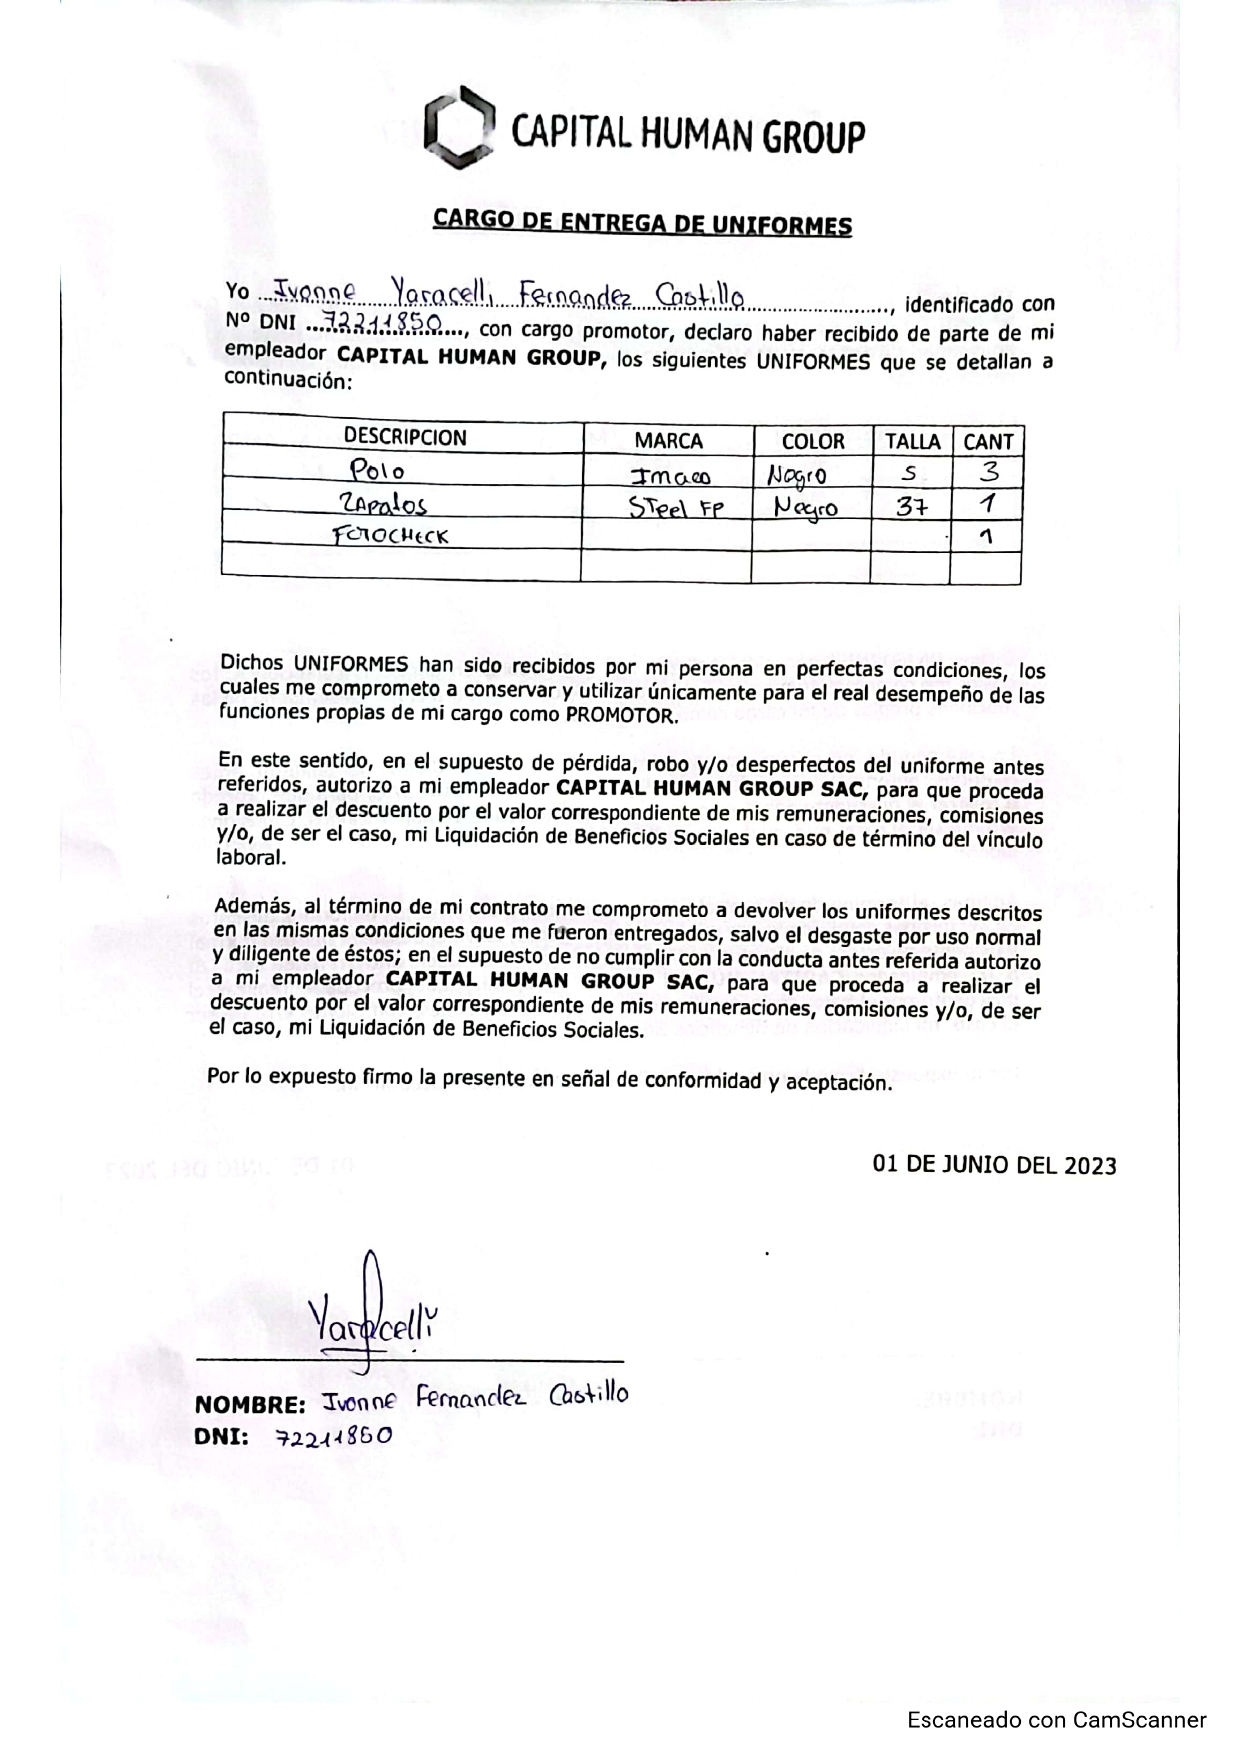 CAPITAL HUMAN GROUP
CARGO DE ENTREGA DE UNIFORMES
Yo ...Ivonne Yaracelli Fernandez Castillo..............................., identificado con
Nº DNI ...72211850..., con cargo promotor, declaro haber recibido de parte de mi
empleador CAPITAL HUMAN GROUP, los siguientes UNIFORMES que se detallan a
continuación:
DESCRIPCION MARCA COLOR TALLA CANT
Polo Imaco Negro S 3
ZAPatos STeel FP Negro 37 1
FOTOCHECK 1
Dichos UNIFORMES han sido recibidos por mi persona en perfectas condiciones, los
cuales me comprometo a conservar y utilizar únicamente para el real desempeño de las
funciones propias de mi cargo como PROMOTOR.
En este sentido, en el supuesto de pérdida, robo y/o desperfectos del uniforme antes
referidos, autorizo a mi empleador CAPITAL HUMAN GROUP SAC, para que proceda
a realizar el descuento por el valor correspondiente de mis remuneraciones, comisiones
y/o, de ser el caso, mi Liquidación de Beneficios Sociales en caso de término del vínculo
laboral.
Además, al término de mi contrato me comprometo a devolver los uniformes descritos
en las mismas condiciones que me fueron entregados, salvo el desgaste por uso normal
y diligente de éstos; en el supuesto de no cumplir con la conducta antes referida autorizo
a mi empleador CAPITAL HUMAN GROUP SAC, para que proceda a realizar el
descuento por el valor correspondiente de mis remuneraciones, comisiones y/o, de ser
el caso, mi Liquidación de Beneficios Sociales.
Por lo expuesto firmo la presente en señal de conformidad y aceptación.
01 DE JUNIO DEL 2023
Yaracelli
NOMBRE: Ivonne Fernandez Castillo
DNI: 72211850
Escaneado con CamScanner